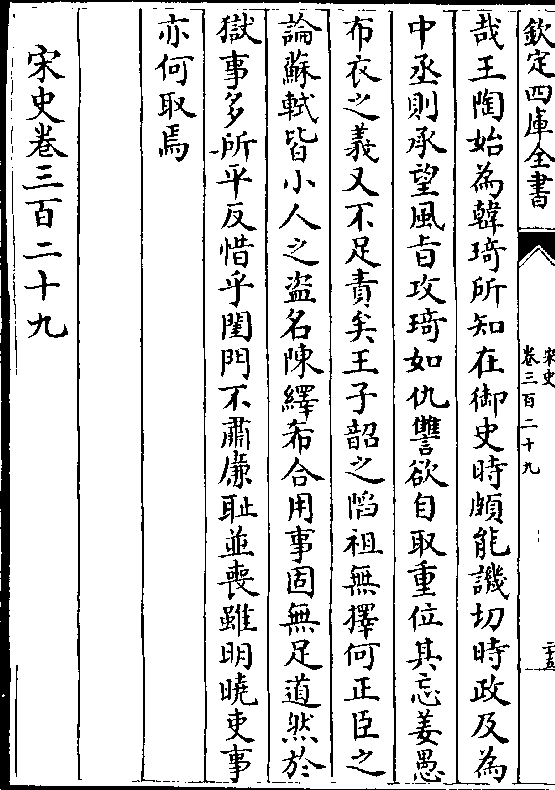 欽定四庫全書
宋史
卷三百二十九
二十五
哉王陶始為韓琦所知在御史時頗能譏切時政及為
中丞則承望風旨攻琦如仇讐欲自取重位其忘姜愚
布衣之義又不足責矣王子韶之䧟祖無擇何正臣之
論蘇軾皆小人之盜名陳繹希合用事固無足道然於
獄事多所平反惜乎閨門不肅廉耻並喪雖明曉吏事
亦何取焉
宋史卷三百二十九